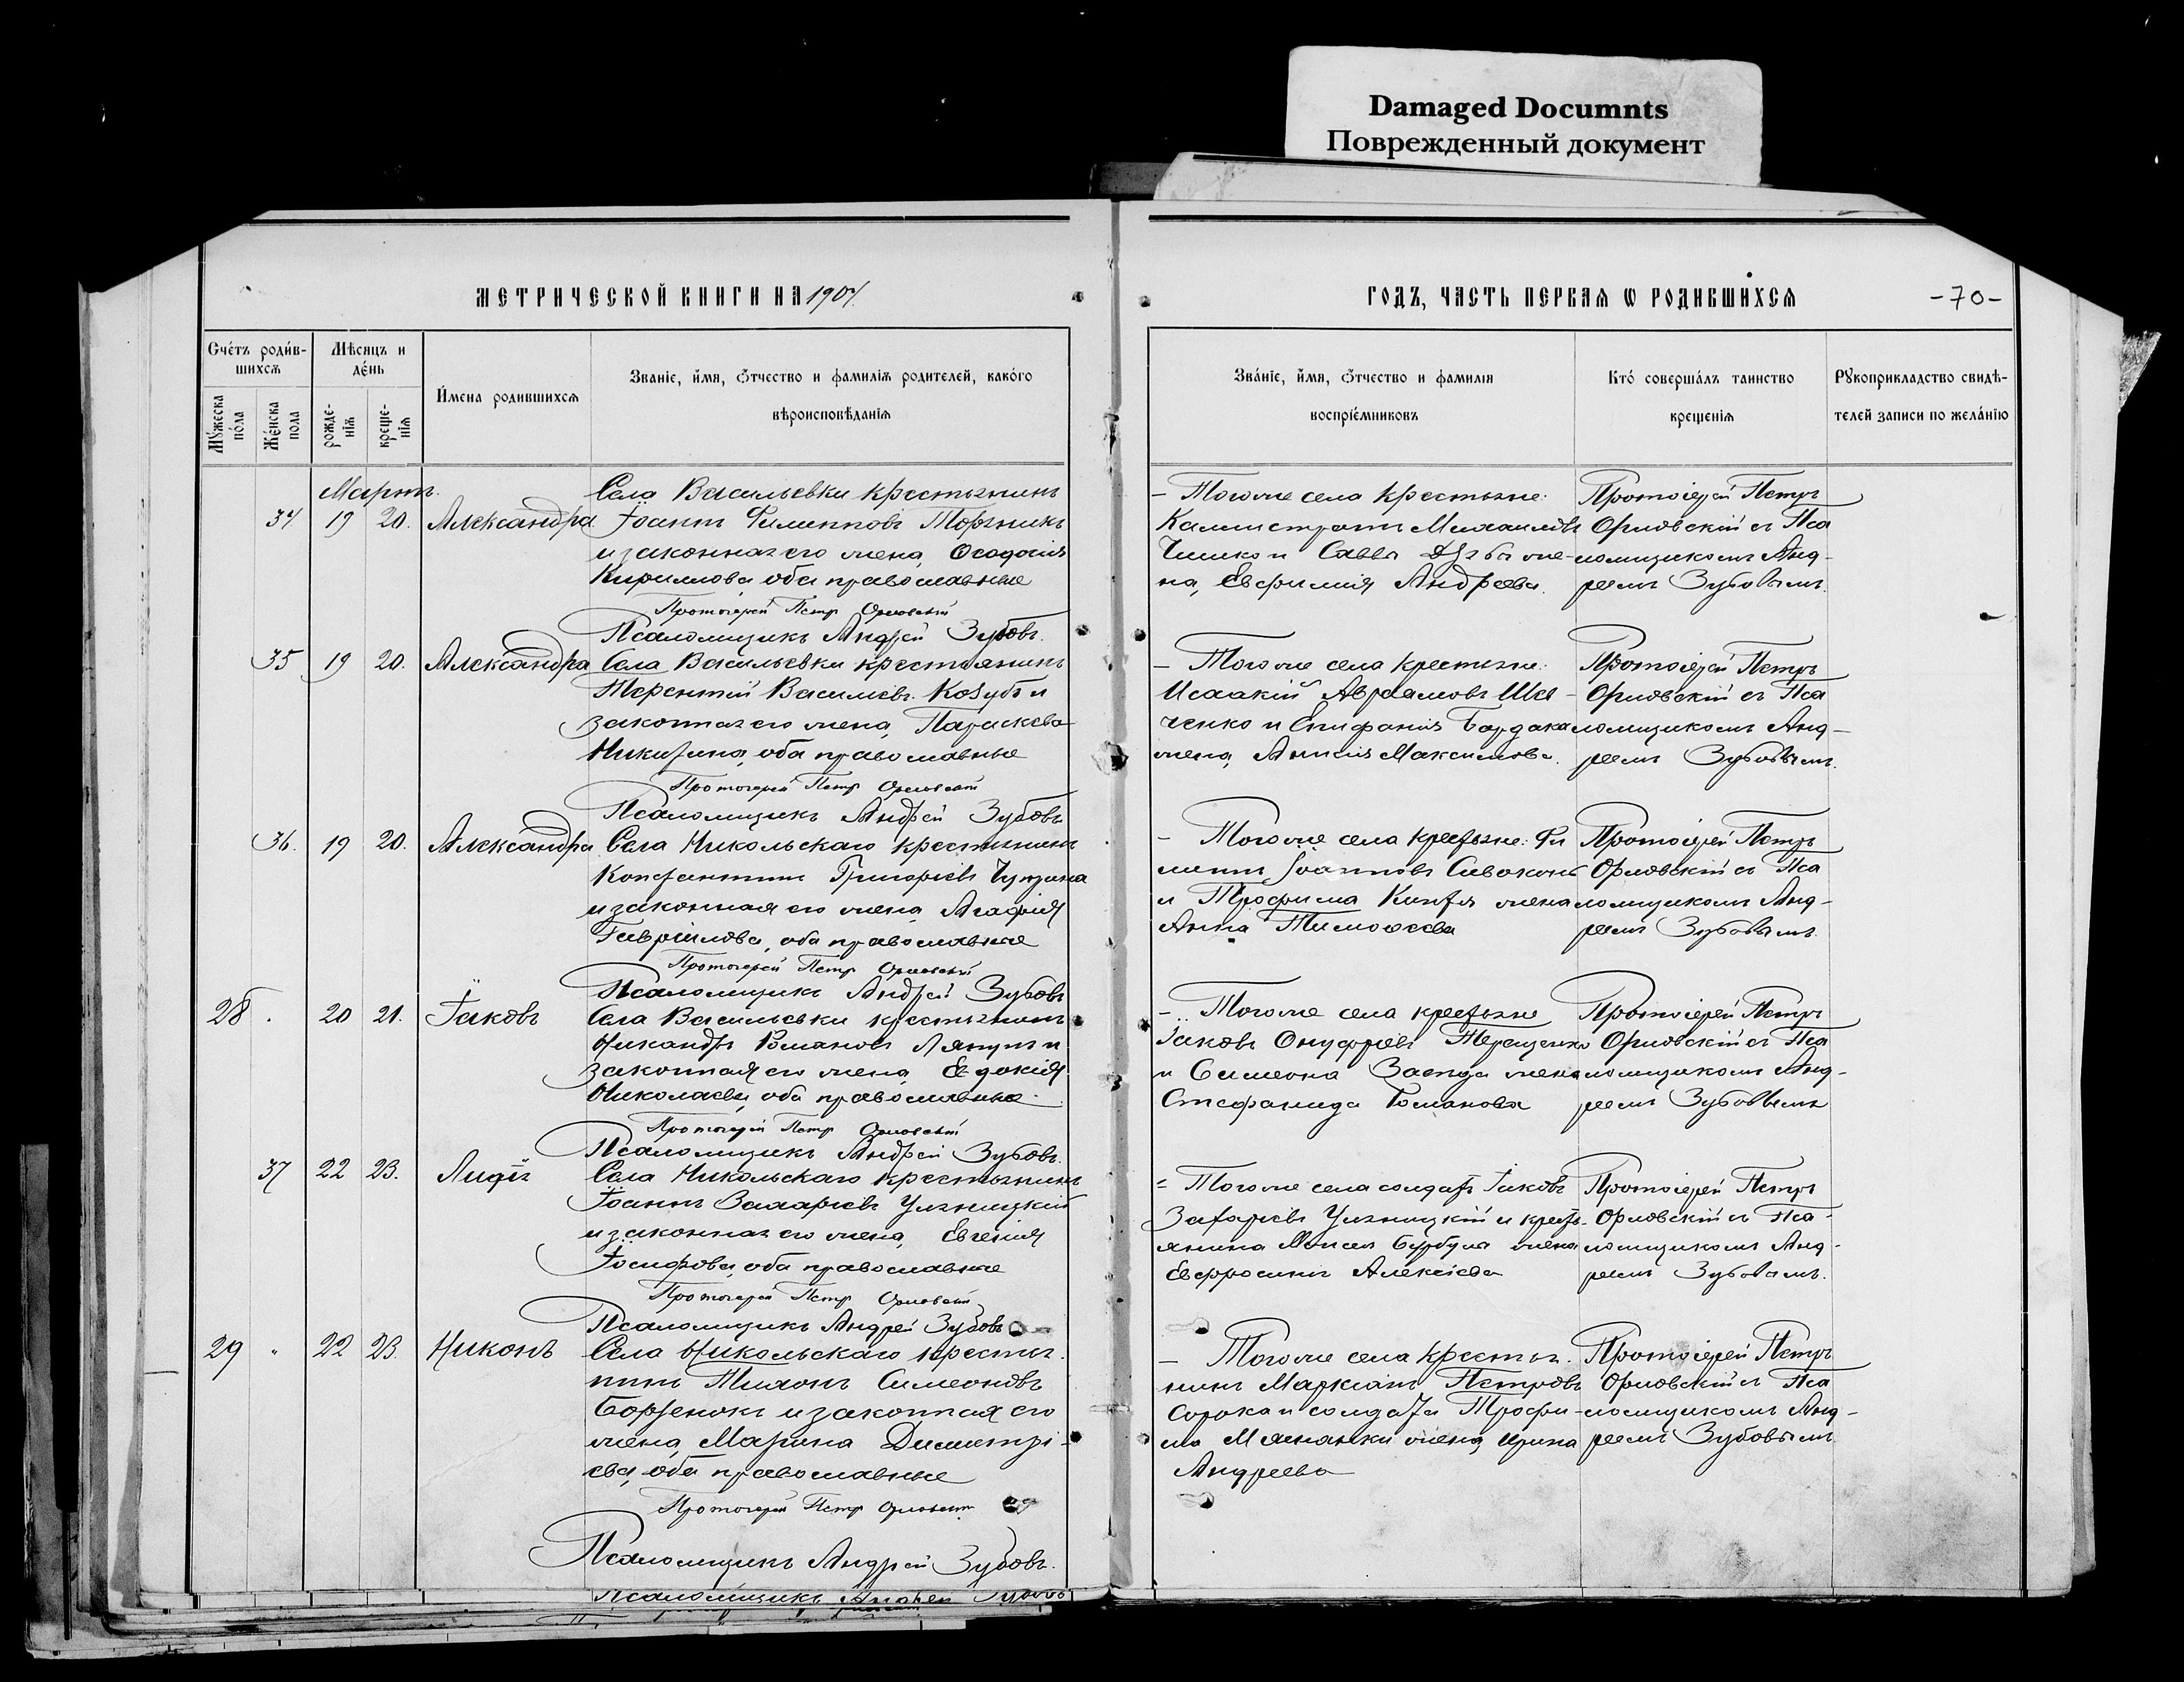 Damaged Documnts
Поврежденный документ
МЕТРИЧЕСКОЙ КНИГИ НА 1904
ГОДЪ, ЧАСТЬ ПЕРВАѦ Ѡ РОДИВШИХСѦ
-70-
Счетъ родив-
шихсѧ
Мѣсяцъ и
день
Мужеска
пола
Женска
пола
рожде-
нія
креще-
нія
Имена родившихсѧ
Званіе, имя, ѿчество и фамиліѧ родителей, какого
вѣроисповѣданія
Званіе, имя, ѿчество и фамилія
воспріемниковъ
Кто совершалъ таинство
крещенія
Рꙋкоприкладство свидѣ-
телей записи по желанію
Мартъ.
34 19 20. Александра
Села Васильевки крестьянинъ
Іоаннъ Филипповъ
и законная его жена Ѳеодосія
Кириллова, оба православные
Протоіерей Петр Орловскій
Псаломщикъ Андрей Зубовъ.
– Того же села крестьяне:
Каллистратъ Михаиловъ
Чишко и Саввы же-
на, Евфимія Андреева.
Протоіерей Петръ
Орловскій съ Пса
ломщикомъ Анд-
реемъ Зубовымъ.
35 19 20. Александра
Села Васильевки крестьянинъ
Терентій Васильевъ Козубъ и
законная его жена, Параскева
Никитина, оба православные
Протоіерей Петр Орловскій
Псаломщикъ Андрей Зубовъ
– Того же села крестьяне:
Исаакій Авраамовъ Шев-
ченко и Епифанія Бардака
жена, Анисія Максимова.
Протоіерей Петръ
Орловскій съ Пса
ломщикомъ Анд-
реемъ Зубовымъ.
36. 19 20. Александра
Села Никольскаго крестьянинъ
Константинъ Григорьевъ
и законная его жена Агафія
Гавріилова, оба православные
Протоіерей Петр Орловскій
Псаломщикъ Андрей Зубовъ
– Того же села крестьяне: Фи
липпъ Іоанновъ Сивоконь
и Трофима жена
Анна Тимоѳеева
Протоіерей Петръ
Орловскій съ Пса
ломщикомъ Анд-
реемъ Зубовымъ.
28 . 20 21. Іаковъ
Села Васильевки крестьянинъ
Никандръ Романовъ Ляпунъ и
законная его жена, Евдокія
Николаева, оба православные.
Протоіерей Петр Орловскій
Псаломщикъ Андрей Зубовъ.
– Того же села крестьяне
Іаковъ Онуфріевъ Терещенко
и Симеона жена
Стефанида Романова
Протоіерей Петръ
Орловскій съ Пса
ломщикомъ Анд-
реемъ Зубовымъ
37 22 23. Лидія
Села Никольскаго крестьянинъ
Іоаннъ Захаріевъ Ульницкій
и законная его жена, Евгенія
Іосифова, оба православные
Протоіерей Петр Орловскій
Псаломщикъ Андрей Зубовъ
= Того же села солдатъ Іаковъ
Захаріевъ Ульницкій и кресть-
янина Моисея жена
Евфросинія Алексіева
Протоіерей Петръ
Орловскій съ Пса-
ломщикомъ Анд-
реемъ Зубовымъ.
29 " 22 23. Никонъ
Села Никольскаго крестья-
нинъ Тихонъ Симеоновъ
Борзенокъ и законная его
жена, Марина Димитрі-
ева, оба православные
Протоіерей Петр Орловскій
Псаломщикъ Андрей Зубовъ.
– Того же села крестья-
нинъ Маркіанъ Петровъ
Сорока и солдата Трофи-
ма жена, Ирина
Андреева
Протоіерей Петръ
Орловскій съ Пса
ломщикомъ Анд-
реемъ Зубовымъ
Псаломщикъ Андрей Зубовъ